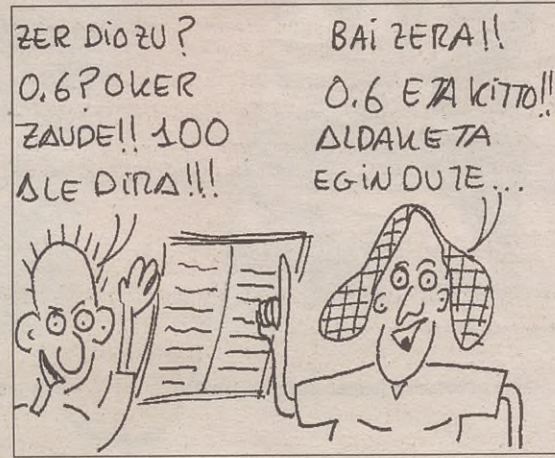 ZER DIOZU?
0.6? OKER
ZAUDE!! 100
ALE DIRA!!!
BAI ZERA!!
0.6 ETA KITTO!!
ALDAKETA
EGIN DUTE...